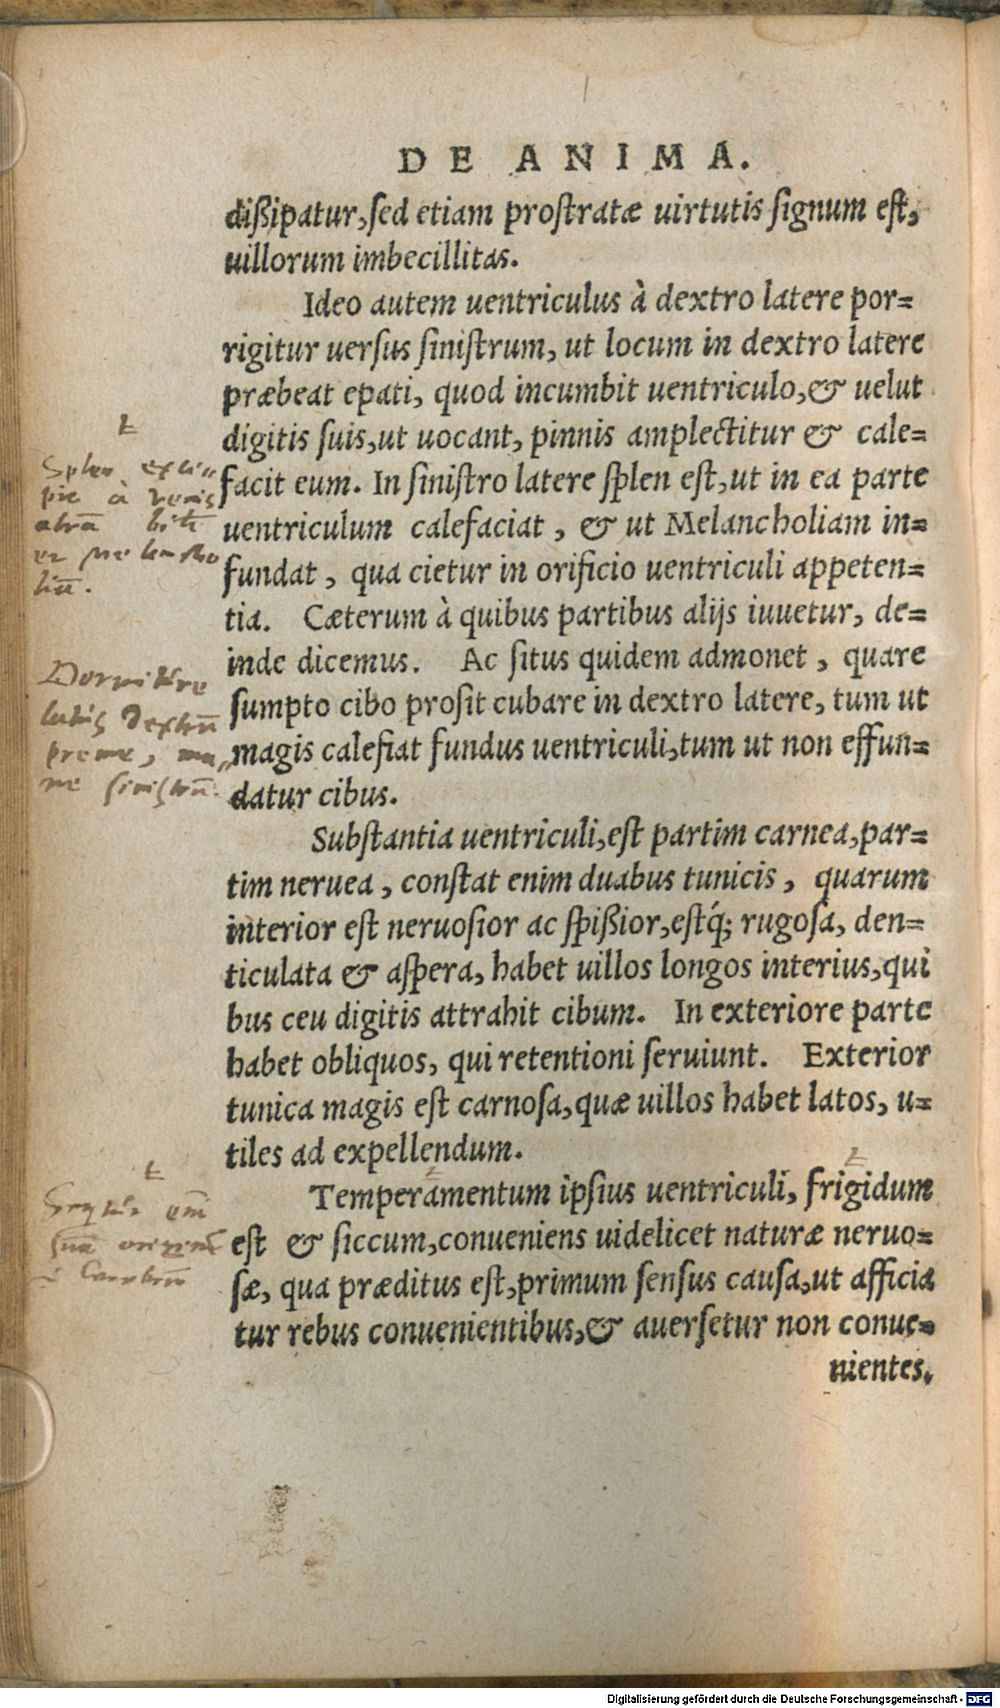 DE ANIMA.
dißipatur, sed etiam prostratæ uirtutis signum est,
uillorum imbecillitas.
Ideo autem uentriculus à dextro latere por=
rigitur uersus sinistrum, ut locum in dextro latere
præbeat epati, quod incumbit uentriculo, & uelut
digitis suis, ut uocant, pinnis amplectitur & cale=
facit eum. In sinistro latere splen est, ut in ea parte
uentriculum calefaciat, & ut Melancholiam in=
fundat, qua cietur in orificio uentriculi appeten=
tia. Cæterum à quibus partibus alijs iuuetur, de=
inde dicemus. Ac situs quidem admonet, quare
sumpto cibo prosit cubare in dextro latere, tum ut
magis calefiat fundus uentriculi, tum ut non effun=
datur cibus.
Substantia uentriculi, est partim carnea, par=
tim neruea, constat enim duabus tunicis, quarum
interior est neruosior ac spißior, estq́; rugosa, den=
ticulata & aspera, habet uillos longos interius, qui
bus ceu digitis attrahit cibum. In exteriore parte
habet obliquos, qui retentioni seruiunt. Exterior
tunica magis est carnosa, quæ uillos habet latos, u=
tiles ad expellendum.
Temperamentum ipsius uentriculi, frigidum
est & siccum, conueniens uidelicet naturæ neruo=
sæ, qua præditus est, primum sensus causa, ut afficia
tur rebus conuenientibus, & auersetur non conue=
nientes.
Splen
à
atrā
Dormi
dextrū
preme,
sinistrū.
Digitalisierung gefördert durch die Deutsche Forschungsgemeinschaft - DFG